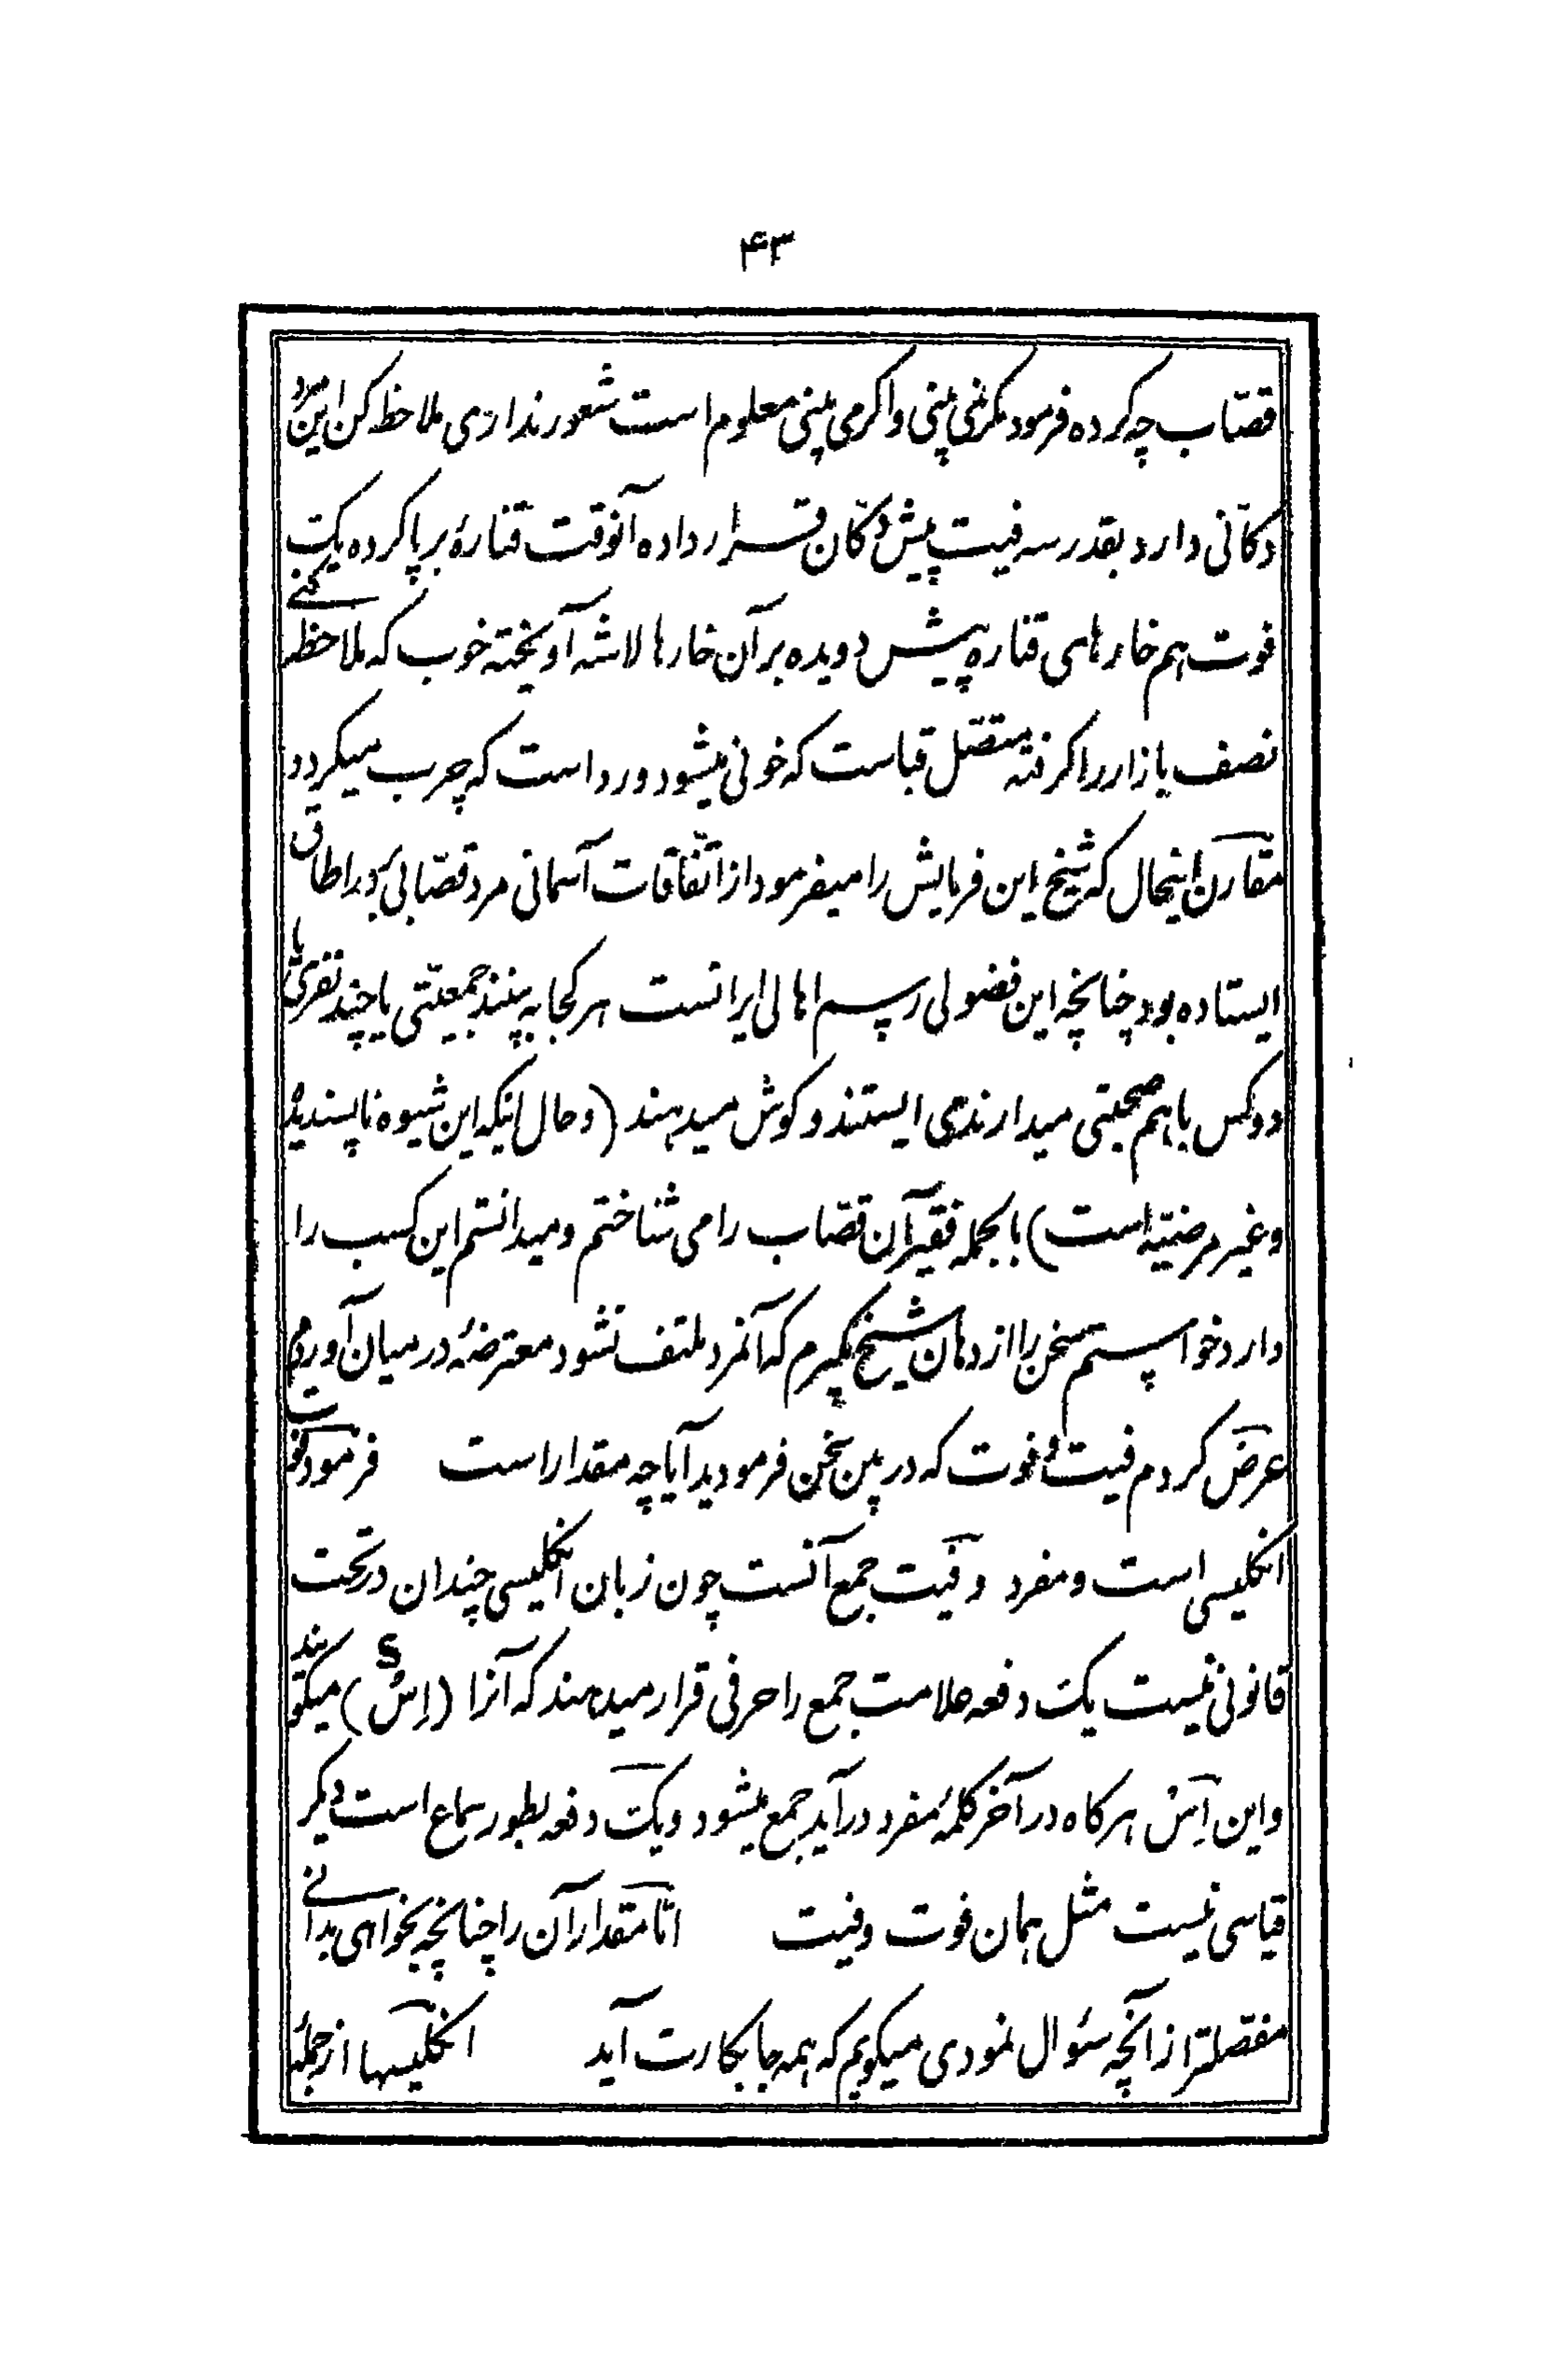 ۴۳
قصّاب چه کرده فرمود مکر نمی بینی واکر می بینی معلوم است شعور نداری ملاحظه کن این مرد
دکّانی دارد بقدر سه فیت پیش دکّان قرار داده آنوقت قنارهٔ برپا کرده یک
فوت هم خارهای قناره پیش دویده بر آن خارها لاشه آویخته خوب که ملاحظه کنی
نصف بازار را کرفته متّصل قباست که خونی میشود و رداست که چرب میکردد
مقارن اینحال که شیخ این فرمایش را میفرمود از اتّفاقات آسمانی مرد قصّابی در اطاق
ایستاده بود چنانچه این فضولی رسم اهالی ایرانست هر کجا به بینند جمعیّتی یا چند نفری یا
دو کس باهم صحبتی میدارند می ایستند و کوش میدهند (و حال اینکه این شیوه ناپسندیده
و غیر مرضیّه است) بالجمله فقیر آن قصّاب را می شناختم و میدانستم این کسب را
دارد خواستم سخن را از دهان شیخ بگیرم که آنمرد ملتفت نشود معترضهٔ در میان آوردم
عرض کردم فیت و فوت که در بین سخن فرمودید آیا چه مقدار است فرمود فوت
انکلیسی است و مفرد و فیت جمع آنست چون زبان انکلیسی چندان در تحت
قانونی نیست یک دفعه علامت جمع را حرفی قرار میدهند که آنرا (اِسْ S) میکویند
و این اِسْ هرکاه در آخر کلمهٔ مفرد درآید جمع میشود و یک دفعه بطور سماع است دیکر
قیاسی نیست مثل همان فوت و فیت امّا مقدار آن را چنانچه بخواهی بدانی
مفصّلتر از آنچه سئوال نمودی میکویم که همه جا بکارت آید انکلیسها از جمله